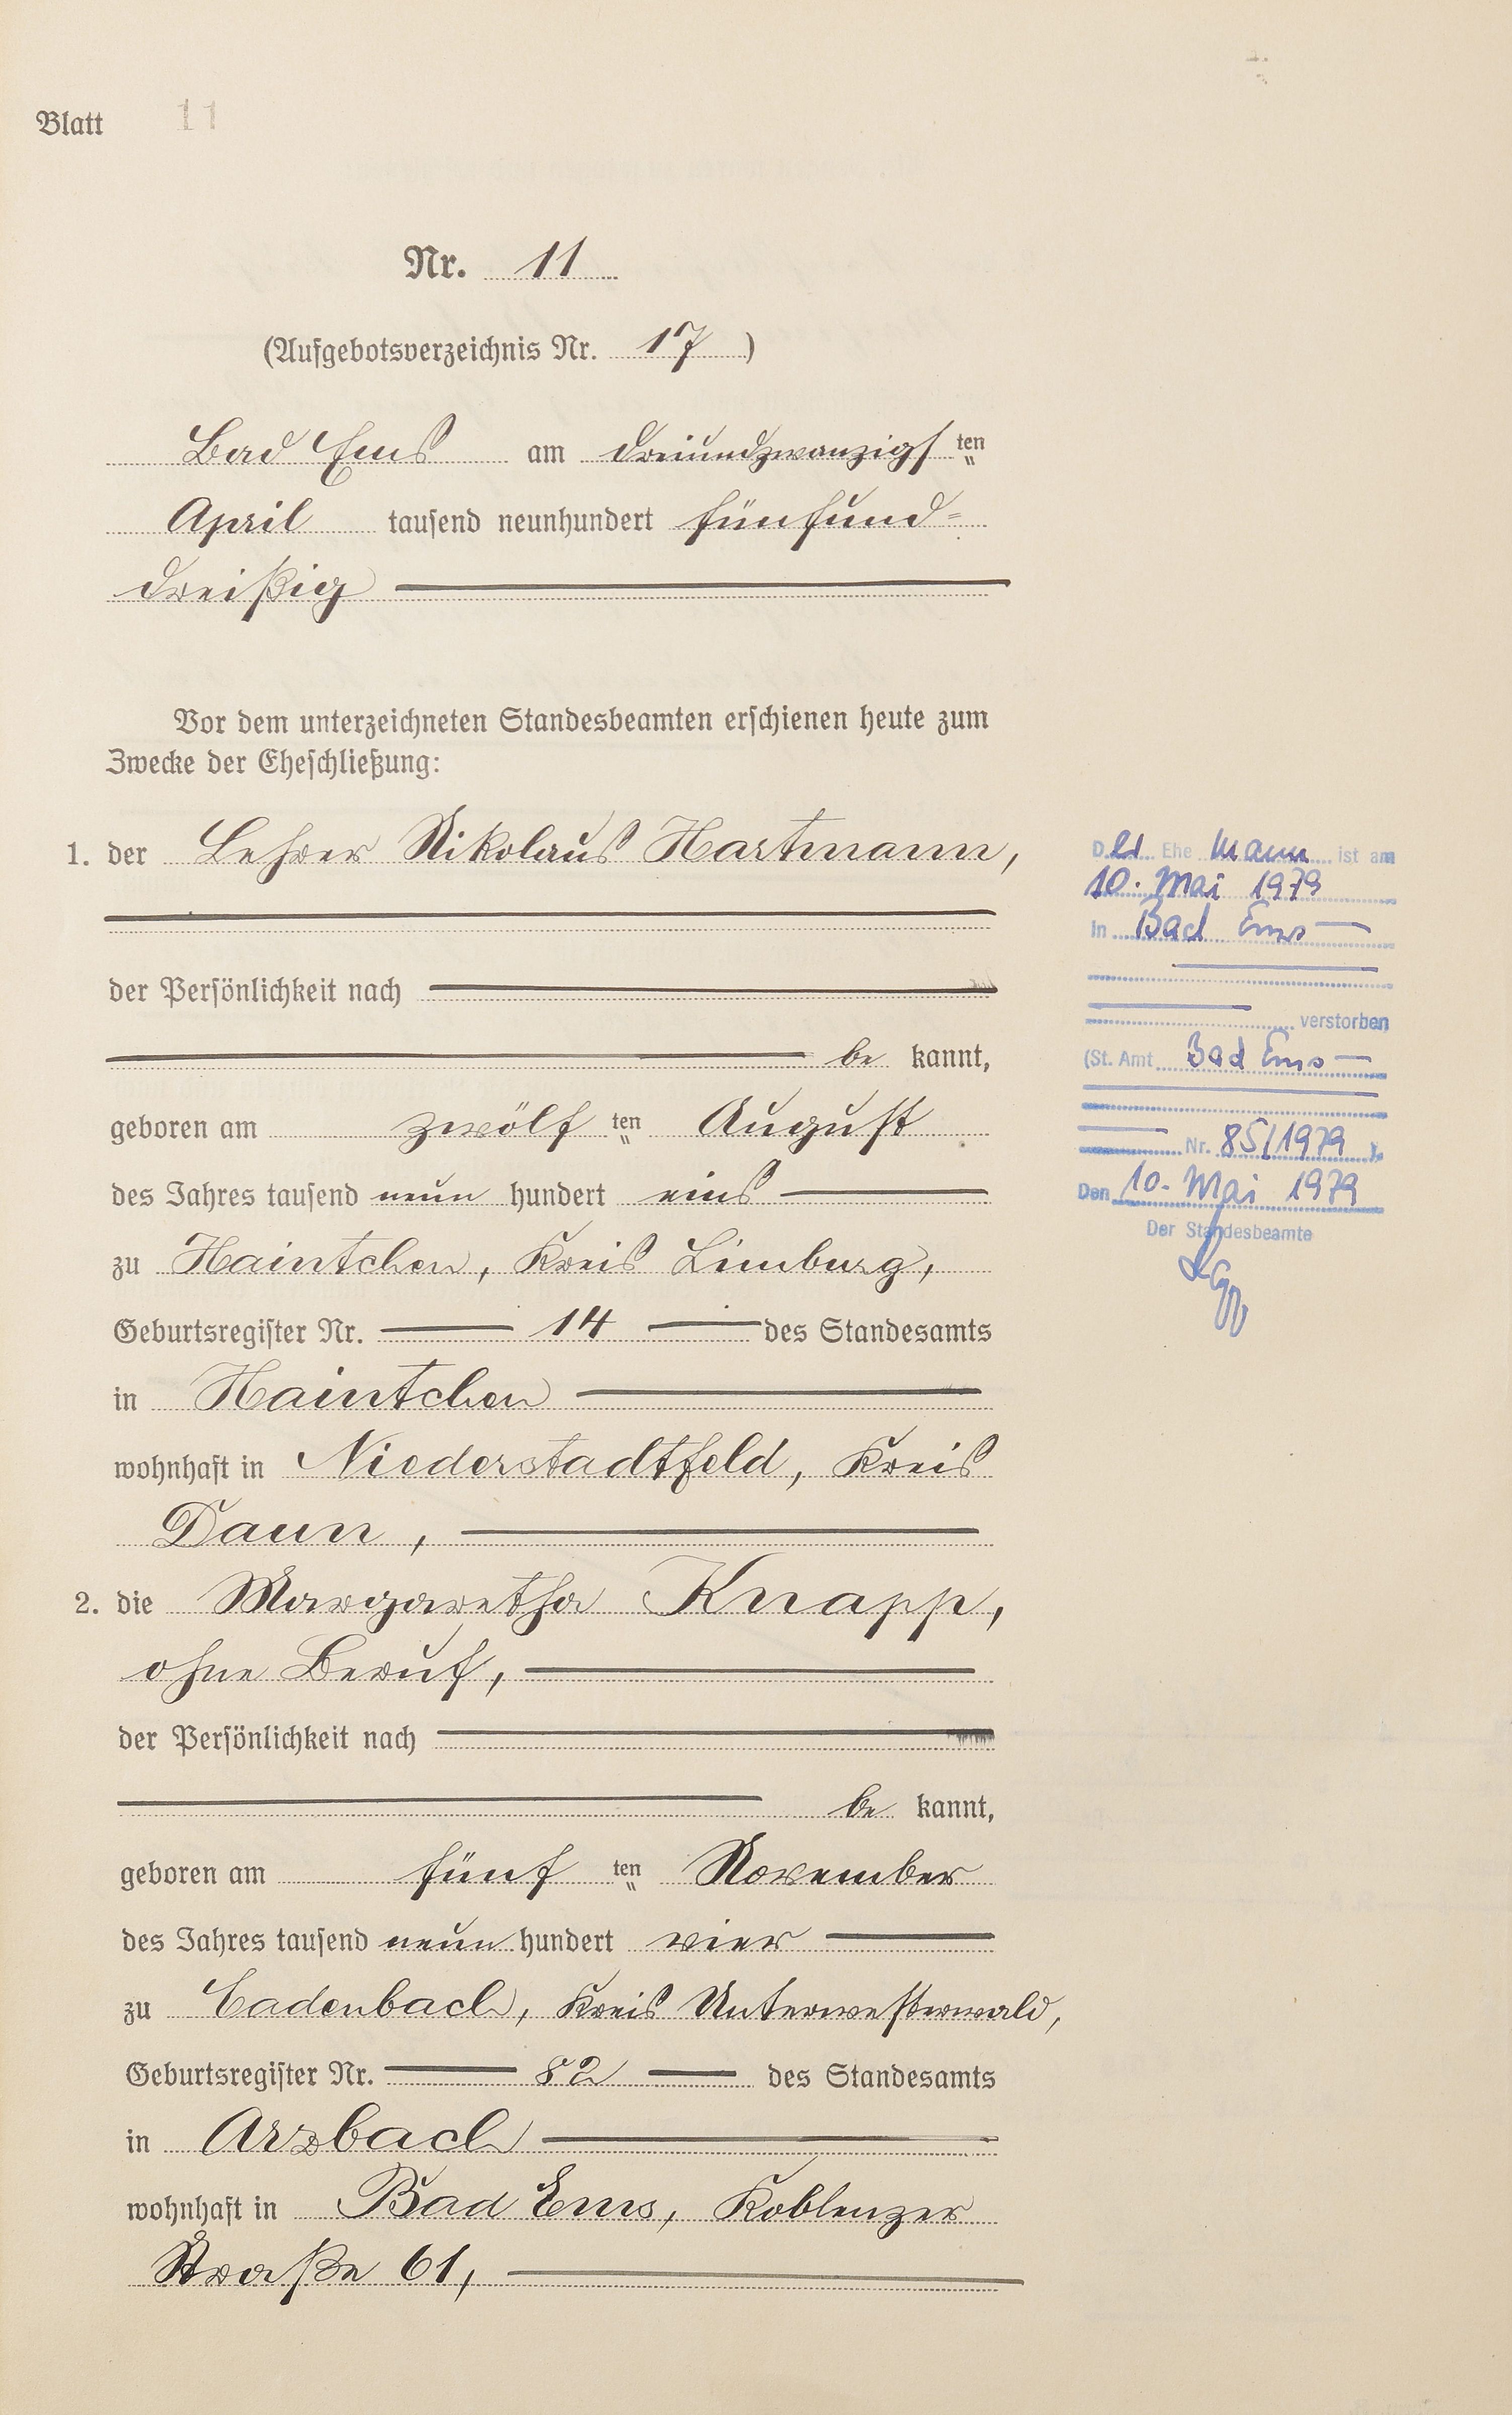 Blatt 11
Nr. 11
(Aufgebotsverzeichnis Nr. 17)
Bad Ems am dreiundzwanzigsten
April tausend neunhundert fünfund-
dreißig
Vor dem unterzeichneten Standesbeamten erschienen heute zum
Zwecke der Eheschließung:
1. der Lehrer Nikolaus Hartmann,
der Persönlichkeit nach
be kannt,
geboren am zwölf ten August
des Jahres tausend neun hundert eins
zu Haintchen, Kreis Limburg,
Geburtsregister Nr. 14 des Standesamts
in Haintchen
wohnhaft in Niederstadtfeld, Kreis
Daun,
2. die Margaretha Knapp,
ohne Beruf,
der Persönlichkeit nach
be kannt,
geboren am fünf ten November
des Jahres tausend neun hundert vier
zu Cadenbach, Kreis Unterwesterwald,
Geburtsregister Nr. 82 des Standesamts
in Arzbach
wohnhaft in Bad Ems, Koblenzer
Straße 61,
Der Ehe mann ist am
10. Mai 1979
in Bad Ems
verstorben
(St. Amt Bad Ems
Nr. 85/1979).
Den 10. Mai 1979
Der Standesbeamte